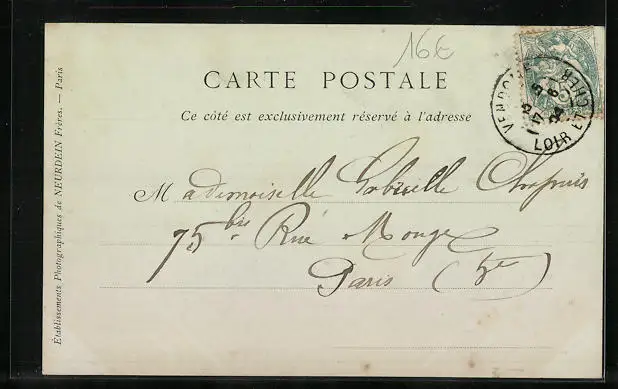 16€
CARTE POSTALE
Ce côté est exclusivement réservé à l'adresse
VENDOME
LOIR ET CHER
Mademoiselle Gabrielle Chapuis
75 bis Rue Monge
Paris (5e)
Établissements Photographiques de NEURDEIN Frères. — Paris